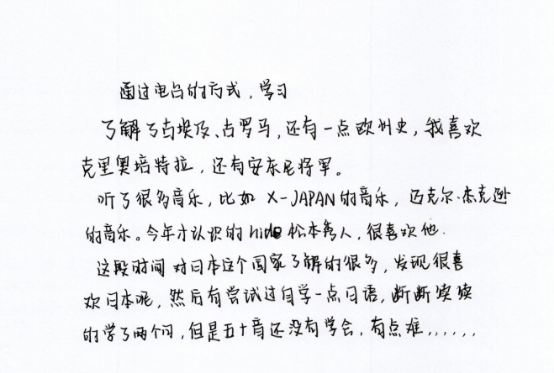 通过电台的方式，学习
了解了古埃及、古罗马，还有一点欧州史，我喜欢
克里奥培特拉，还有安东尼将军。
听了很多音乐，比如 X-JAPAN的音乐，迈克尔·杰克逊
的音乐。今年才认识的hide松本秀人，很喜欢他.
这段时间对日本这个国家了解的很多，发现很喜
欢日本呢，然后有尝试过自学一点日语，断断续续
的学了两个月，但是五十音还没有学会，有点难......